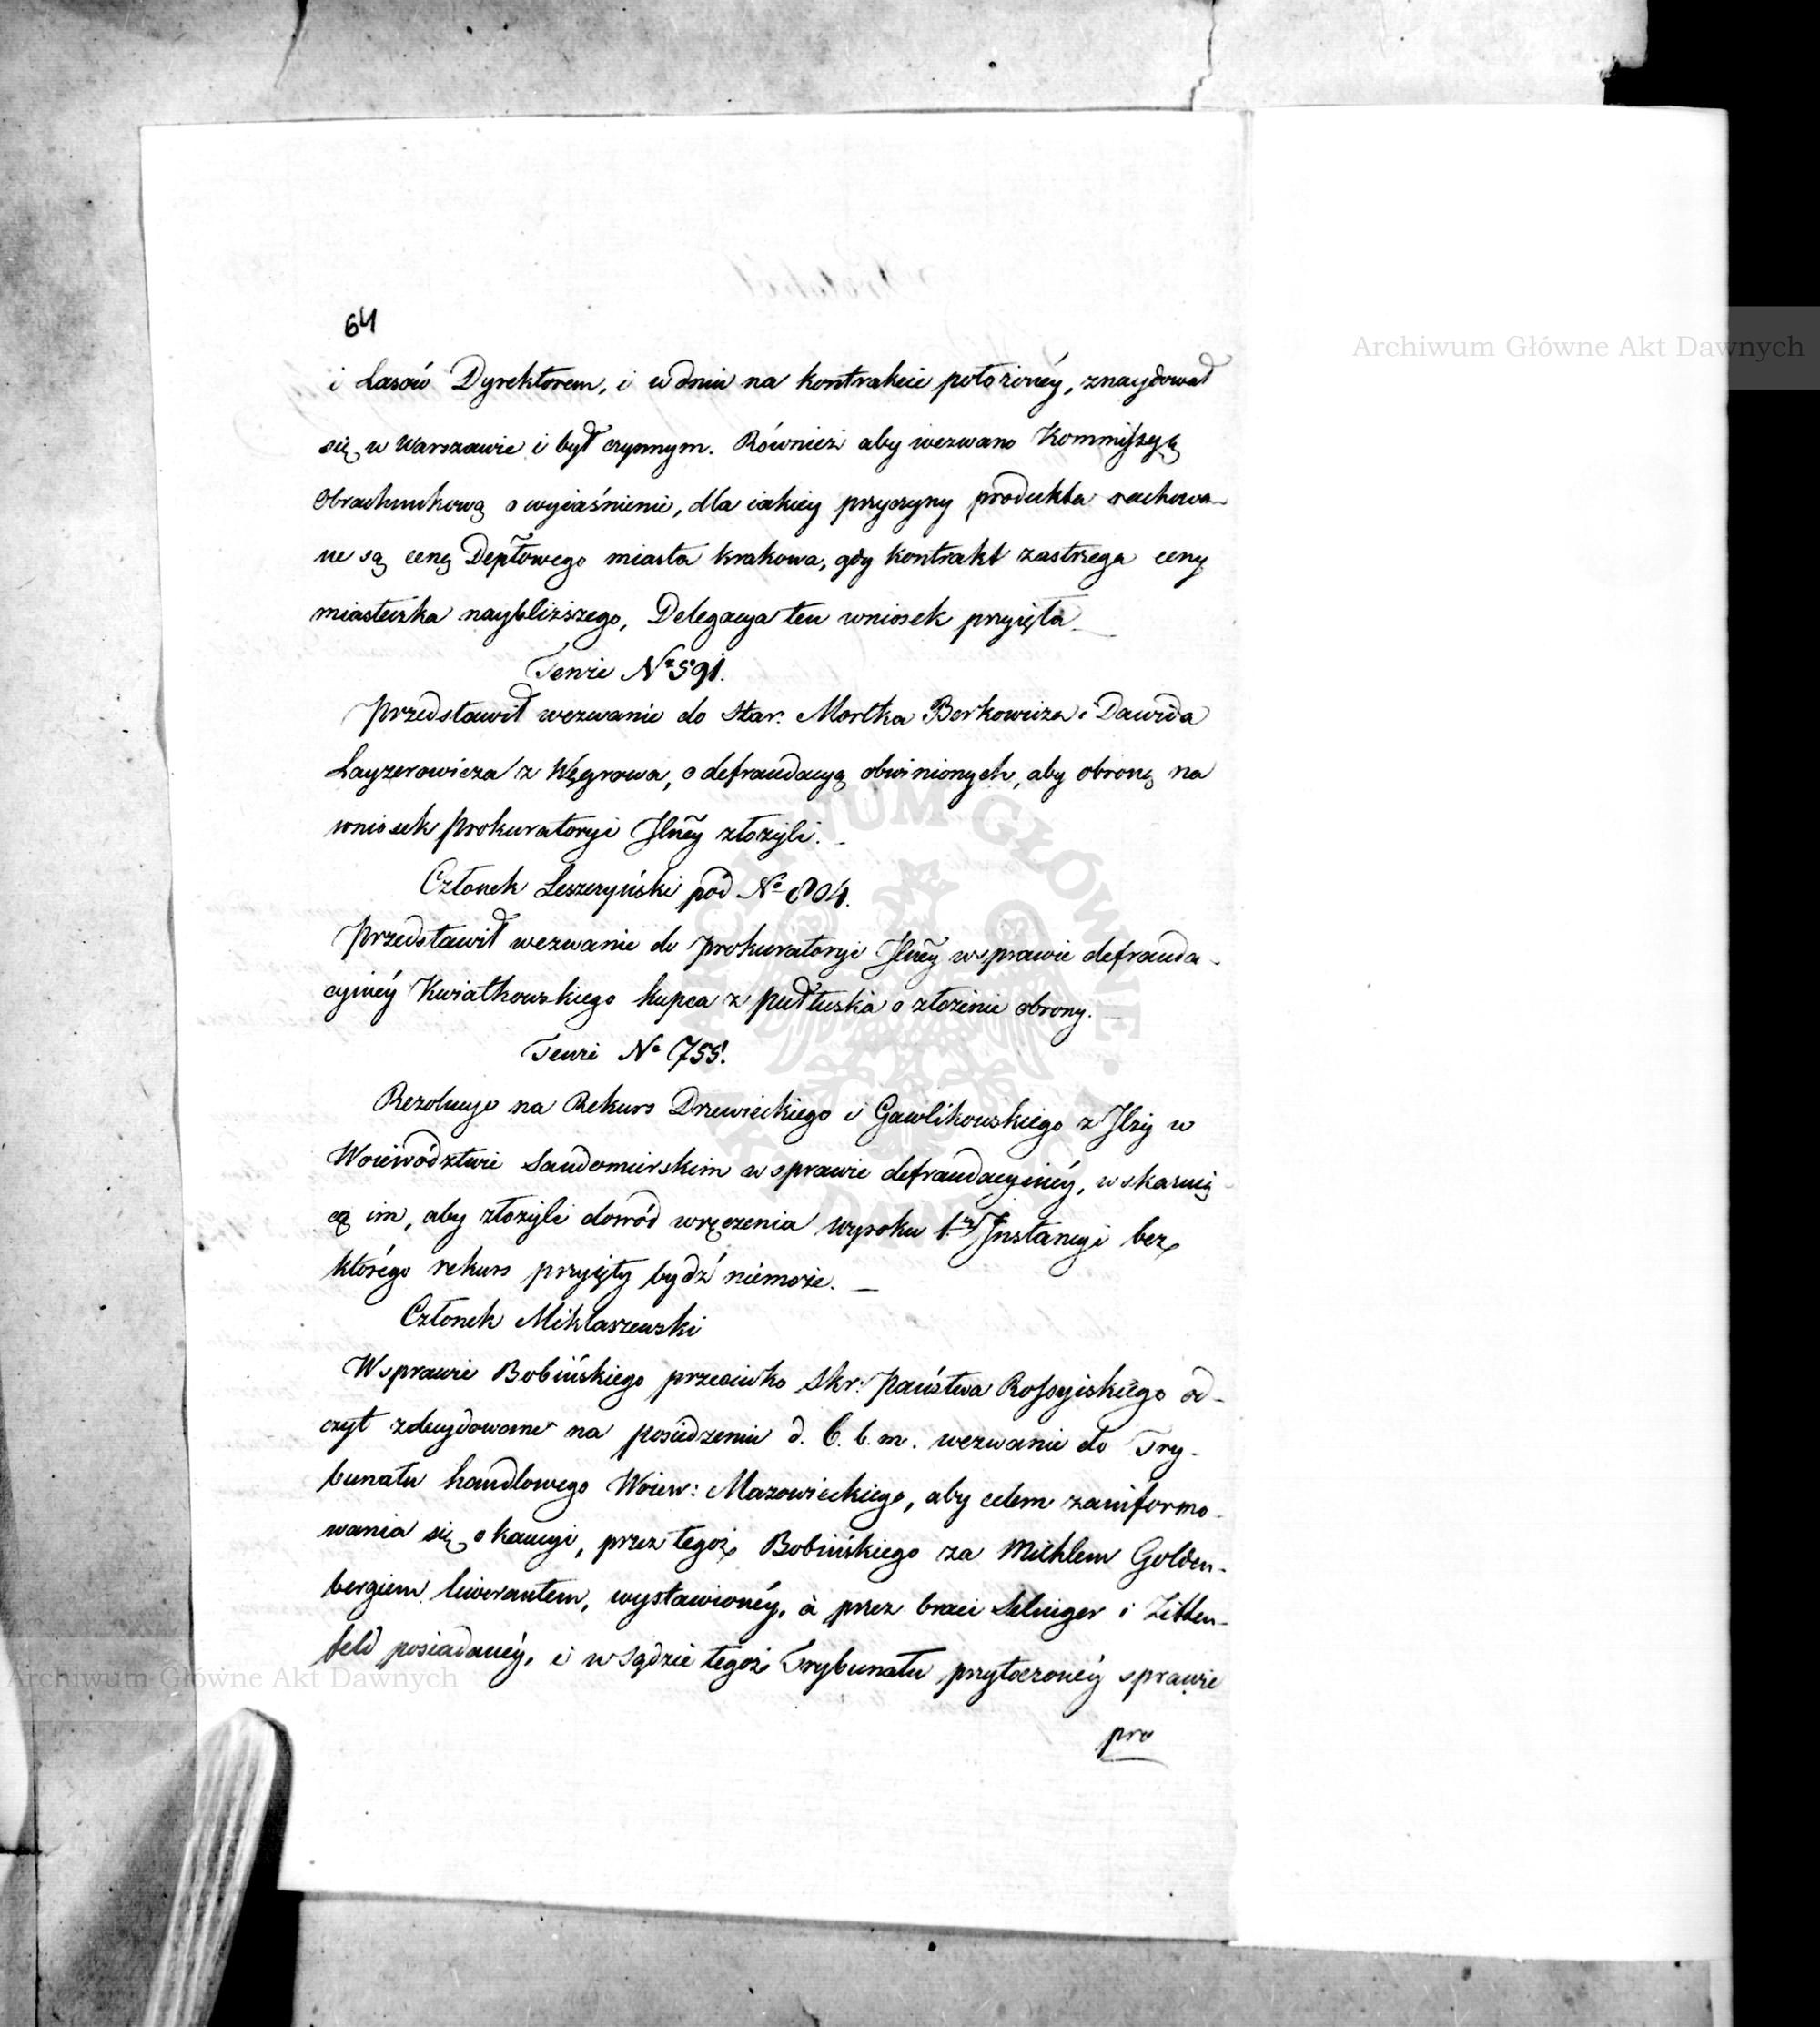 64
i Lasów Dyrektorem, i w dniu na kontrakcie położonéy, znaydował
się w Warszawie i był czynnym. Również aby wezwano Kommissyą
Obrachunkową o wyiaśnienie, dla iakiey przyczyny produkta rachowa-
ne są ceną Depłowego miasta Krakowa, gdy kontrakt zastrzega ceny
miasteczka naybliższego, Delegacya ten wniosek przyięła
Tenże No 591.
Przedstawił wezwanie do Star: Mortka Berkowicza i Dawida
Layzerowicza z Węgrowa, o defraudacyą obwinionych, aby obronę na
wniosek Prokuratoryi Jlnẽy złożyli.
Członek Leszczyński pod No 804.
Przedstawił wezwanie do Prokuratoryi Jlnẽy w sprawie defrauda-
cyinéy Kwiatkowskiego kupca z Pułtuska o złożenie obrony.
Tenże No 755.
Rezolucye na Rekurs Drzewieckiego i Gawlikowskiego z Jłży w
Woiewództwie Sandomierskim w sprawie defraudacyinéy, wskazuią
cą im, aby złożyli dowód wręczenia wyroku 1éy Jnstancyi bez
którego rekurs przyięty bydź niemoże.
Członek Miklaszewski
W sprawie Bobińskiego przeciwko Skr: Państwa Rossyiskiego od-
czyt zdecydowane na posiedzeniu d. 6. b. m. wezwanie do Try-
bunału handlowego Woiew: Mazowieckiego, aby celem zainformo-
wania się o kaucyi, przez tegoż Bobińskiego za Michlem Golden-
bergiem liwerantem, wystawionéy, à przez braci Selinger i Litten-
feld posiadanéy, i w Sądzie tegoż Trybunału przytoczonéy sprawie
pro
Archiwum Główne Akt Dawnych
Archiwum Główne Akt Dawnych